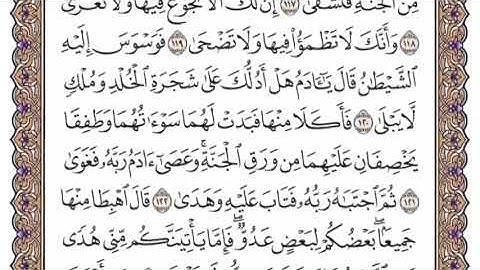 مِنَ الْجَنَّةِ فَتَشْقَىٰ ١١٧ إِنَّ لَكَ أَلَّا تَجُوعَ فِيهَا وَلَا تَعْرَىٰ
١١٨ وَأَنَّكَ لَا تَظْمَؤُا فِيهَا وَلَا تَضْحَىٰ ١١٩ فَوَسْوَسَ إِلَيْهِ
الشَّيْطَٰنُ قَالَ يَٰٓـَٔادَمُ هَلْ أَدُلُّكَ عَلَىٰ شَجَرَةِ الْخُلْدِ وَمُلْكٍ
لَّا يَبْلَىٰ ١٢٠ فَأَكَلَا مِنْهَا فَبَدَتْ لَهُمَا سَوْءَٰتُهُمَا وَطَفِقَا
يَخْصِفَانِ عَلَيْهِمَا مِن وَرَقِ الْجَنَّةِ ۚ وَعَصَىٰٓ ءَادَمُ رَبَّهُۥ فَغَوَىٰ
١٢١ ثُمَّ اجْتَبَٰهُ رَبُّهُۥ فَتَابَ عَلَيْهِ وَهَدَىٰ ١٢٢ قَالَ اهْبِطَا مِنْهَا
جَمِيعًۢا ۖ بَعْضُكُمْ لِبَعْضٍ عَدُوٌّ ۖ فَإِمَّا يَأْتِيَنَّكُم مِّنِّي هُدًى